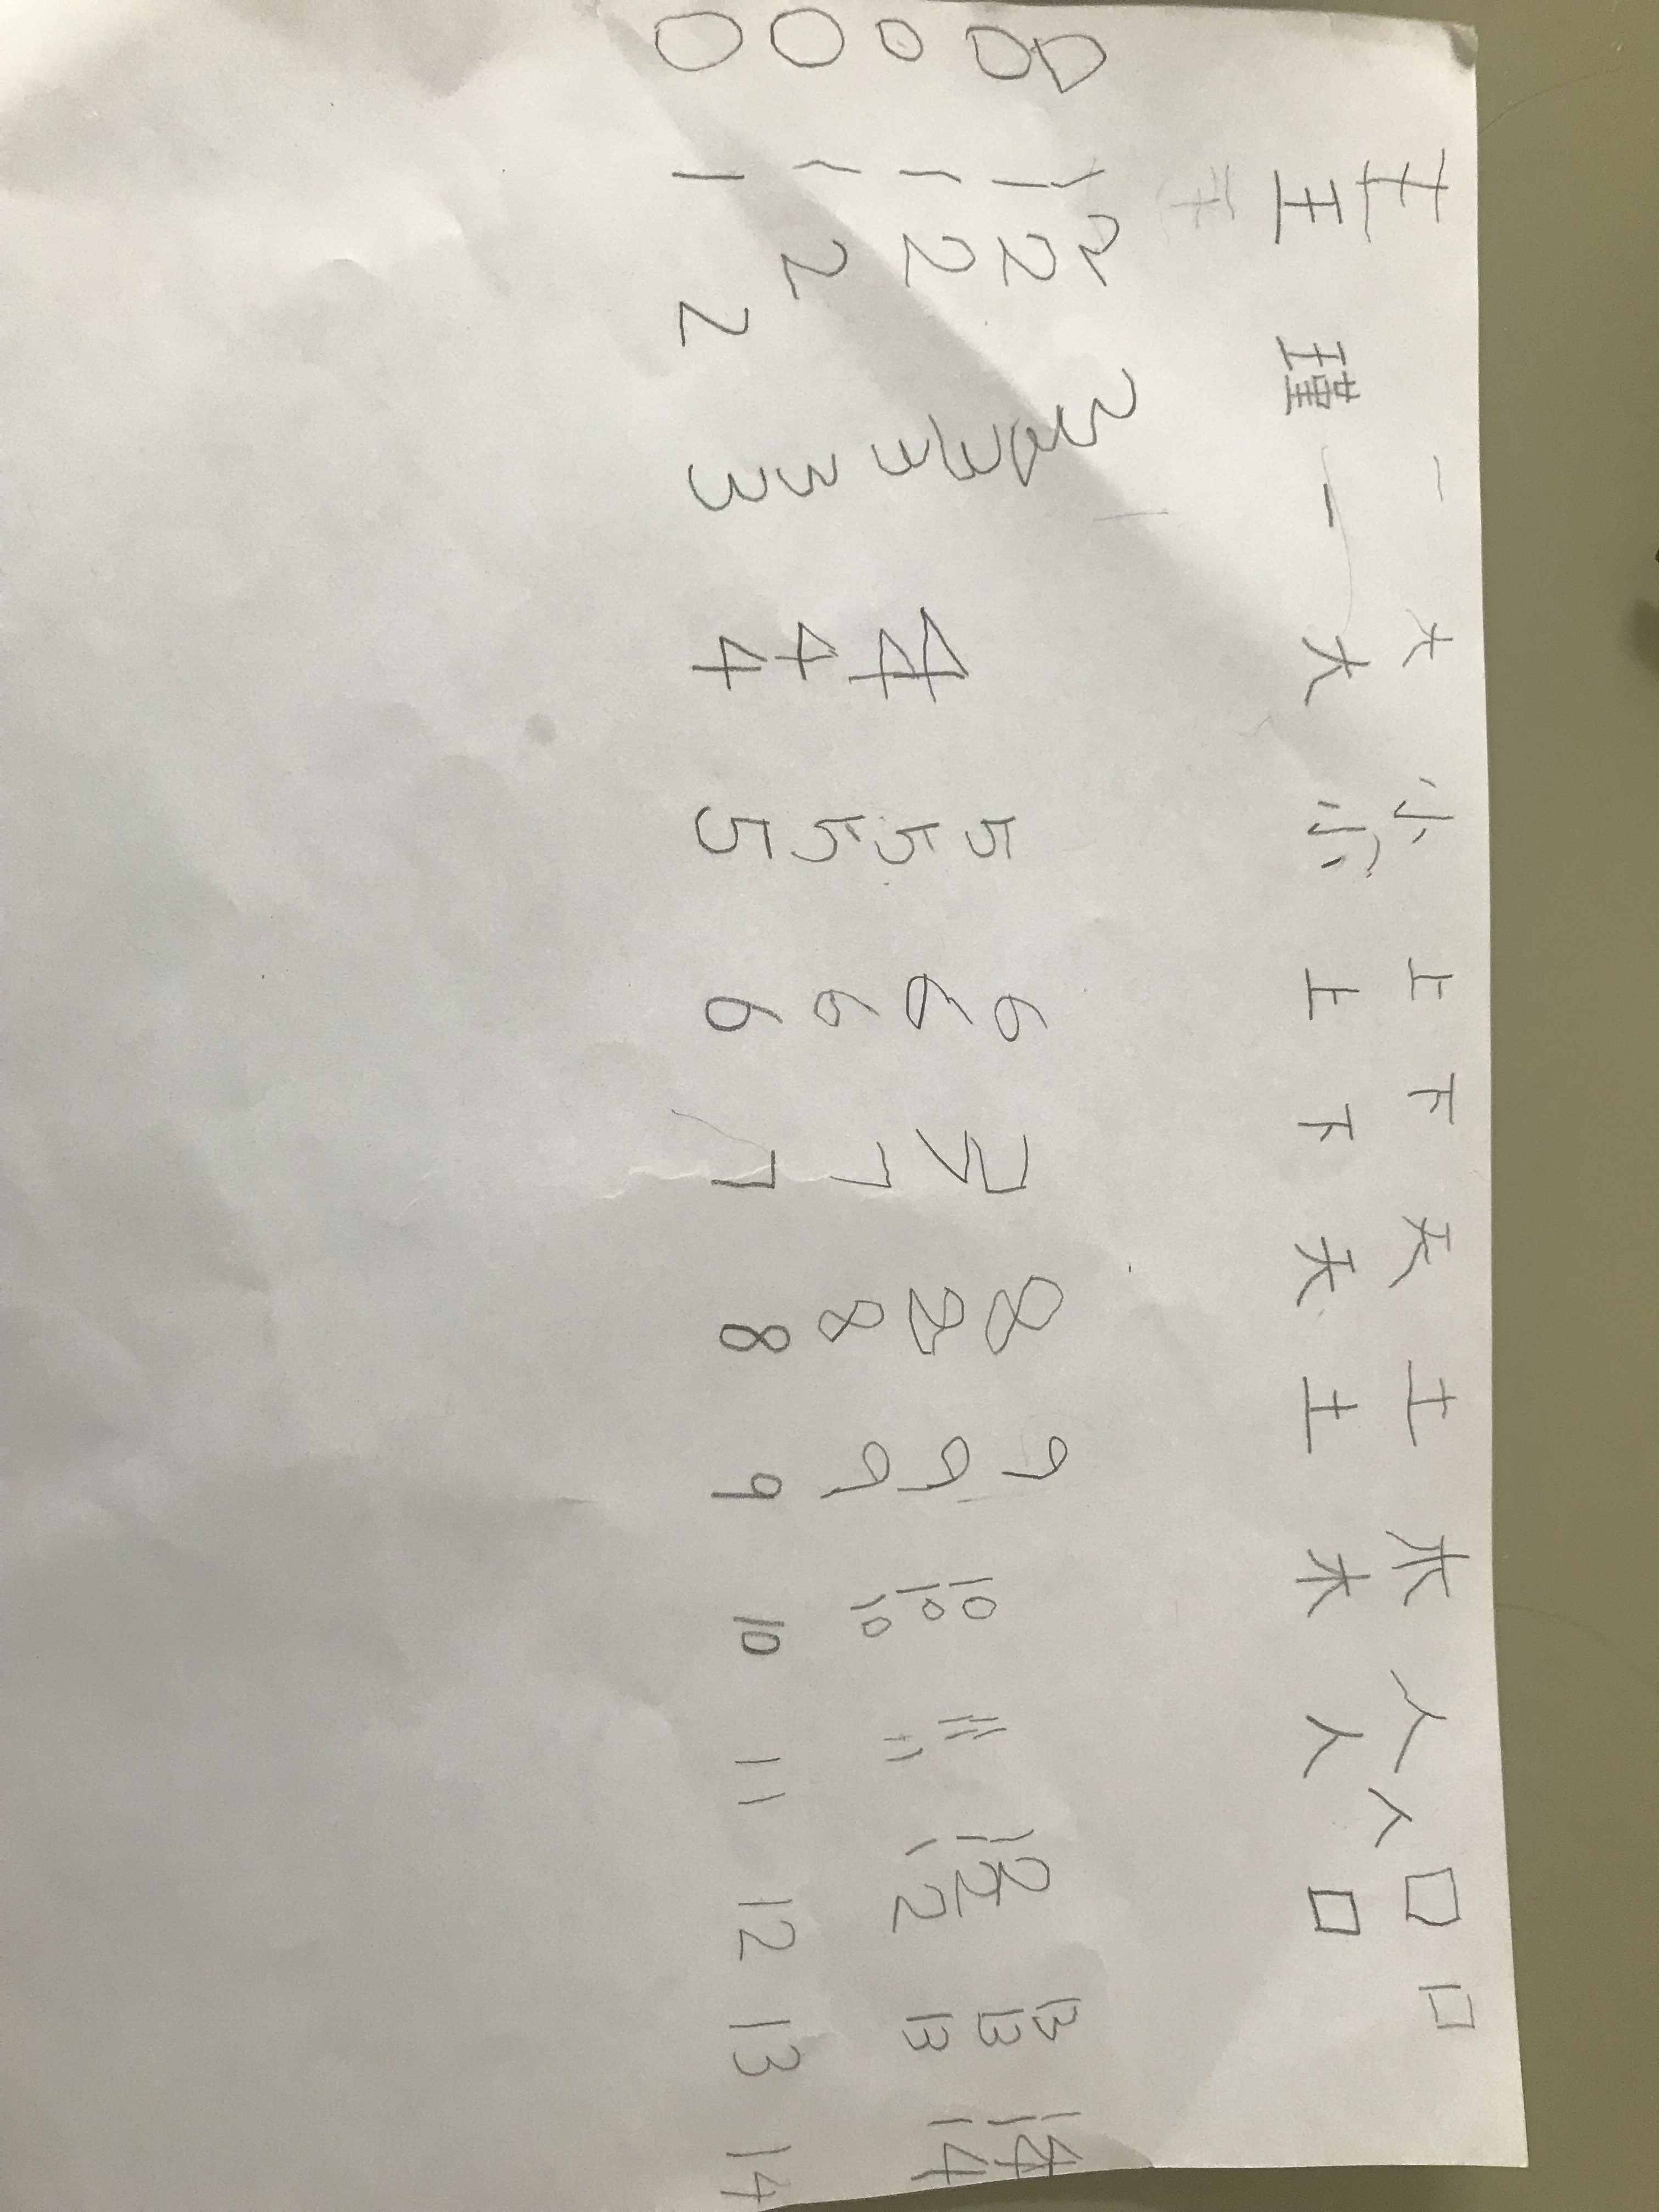 王 一 大 小 上 下 天 土 木 人 人 口 口
王 瑾 一 大 小 上 下 天 土 木 人 口
0 1 2 3
0 1 2 3 4 5 6 7 8 9 10 11 12 13 14
0 1 2 3 4 5 6 7 8 9 10 11 12 13 14
0 1 2 3 4 5 6 7 8 9 10 11 12 13 14
0 1 2 3 4 5 6 7 8 9 10 11 12 13 14